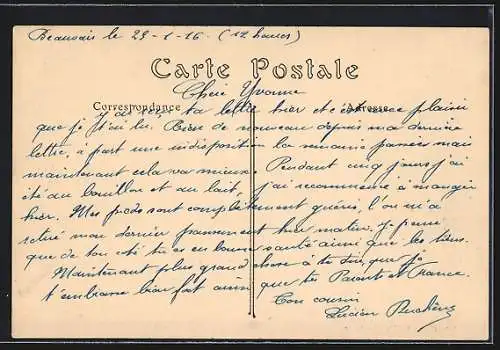 Beauvais le 29-1-16 (12 heures)
Carte Postale
Chère Yvonne
Correspondance Adresse
J'ai reçu ta lettre hier et c'est avec plaisir
que je l'ai lu. Rien de nouveau depuis ma dernière
lettre, à part une indisposition la semaine passée mais
maintenant cela va mieux. Pendant cinq jours j'ai
été au bouillon et au lait, j'ai recommencé à manger
hier. Mes pieds sont complètement guéris, l'on m'a
retiré mon dernier pansement hier matin. Je pense
que de ton côté tu es en bonne santé ainsi que les tiens.
Maintenant plus grand chose à te dire que je
t'embrasse bien fort ainsi que tes Parents et France.
Ton cousin
Lucien